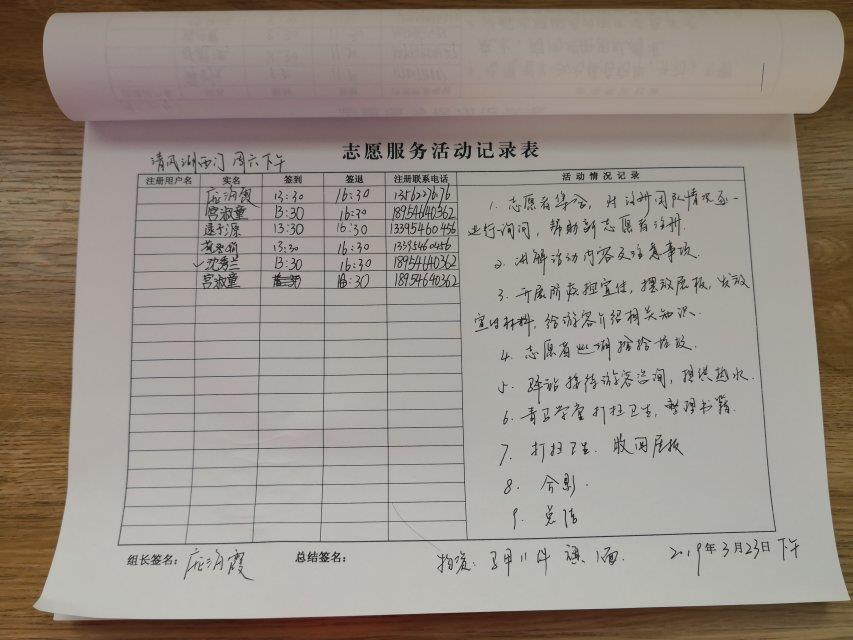 清风湖西门 周六下午
志愿服务活动记录表
注册用户名 实名 签到 签退 注册联系电话 活动情况记录
13:30 16:30
宫淑童 13:30 16:30 18954640362
13:30 16:30 13395460456
13:30 16:30 13395460456
沈秀兰 13:30 16:30 18954640362
宫淑童 16:30 18954640362
1. 志愿者集合, 对注册团队情况逐一
进行询问, 帮助新志愿者注册.
2. 讲解活动内容及注意事项.
3. 开展防疾控宣传, 摆放展板, 发放
宣传材料, 给游客介绍相关知识.
4. 志愿者巡湖捡拾垃圾.
5. 驿站接待游客咨询, 提供热水.
6. 青马学堂打扫卫生, 整理书籍.
7. 打扫卫生. 收回展板
8. 合影.
9. 总结
组长签名: 总结签名:
2019年3月23日下午